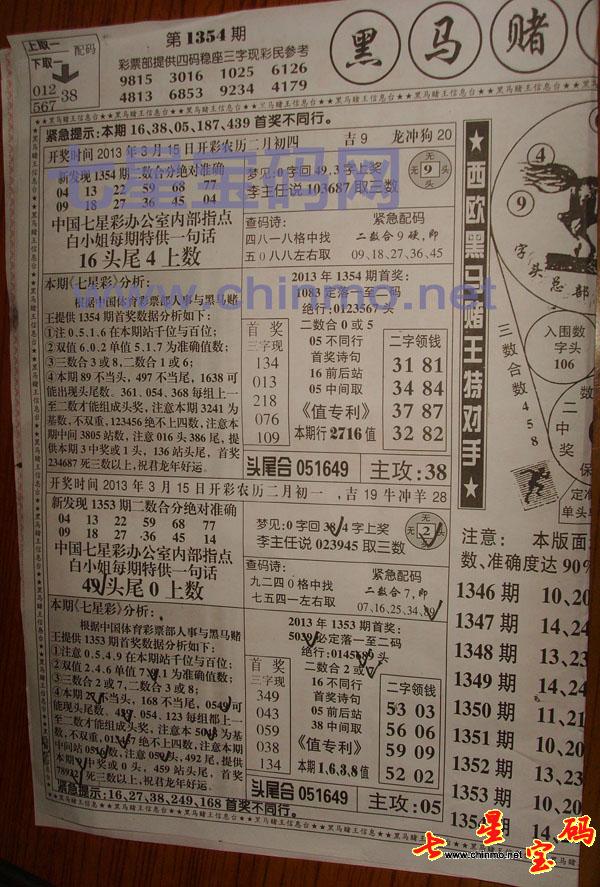 上取一
下取一
配码
012
567
38
第 1354 期
彩票部提供四码稳座三字现彩民参考
9815 3016 1025 6126
4813 6853 9234 4179
黑马赌
紧急提示:本期 16,38,05,187,439 首奖不同行。
开奖时间 2013 年 3 月 15 日开彩农历二月初四 吉 9 龙冲狗 20
新发现 1354 期二数合分绝对准确
04 13 22 59 68 77
09 18 27 36 45 04
中国七星彩办公室内部指点
白小姐每期特供一句话
16 头尾 4 上数
梦见:0 字回 49,3 字上奖
李主任说 103687 取三数
无
无9无
无
查码诗:
四八一八格中找
五 0 八八左右取
紧急配码
二数合 9 硬,即
09,18,27,36,45
本期《七星彩》分析:
根据中国体育彩票部人事与黑马赌
王提供 1354 期首奖数据分析如下:
①注 0.5.1.6 在本期站千位与百位;
②双值 6.0.2 单值 5.1.7 为准确值数;
③三数合 3 或 8,二数合 1 或 6;
④本期 89 不当头,497 不当尾,1638 可
能出现头尾数。361、054、368 每组上一
至二数才能组成头奖,注意本期 3241 为
基数,不双重,123456 绝不上四数,注意本
期中间 3805 站数,注意 016 头 386 尾,提
供本期 3 中奖或 1 头,136 站头尾,首奖
234687 死三数以上,祝君龙年好运。
首奖
三字现
134
013
218
076
109
2013 年 1354 期首奖:
1083 定落一至二码
绝行:0123567 头
二数合 0 或 5
05 不同行
首奖诗句
16 前后站
05 中间取
《值专利》
本期行 2716 值
二字领钱
31 81
34 84
37 87
32 82
头尾合 051649
主攻:38
开奖时间 2013 年 3 月 15 日开彩农历二月初一 ,吉 19 牛冲羊 28
新发现 1353 期二数合分绝对准确
04 13 22 59 68 77
09 18 27 36 45 14
中国七星彩办公室内部指点
白小姐每期特供一句话
49 头尾 0 上数
李主任说 023945 取三数
无
无2无
无
查码诗:
九二四 0 格中找
七五四一左右取
紧急配码
二数合 7,即
本期《七星彩》分析:
根据中国体育彩票部人事与黑马赌
王提供 1353 期首奖数据分析如下:
①注 0.5.4.9 在本期站千位与百位;
③三数合 2 或 7,二数合 3 或 8;
首奖
三字现
349
043
059
038
134
2013 年 1353 期首奖:
二数合 2 或
16 不同行
首奖诗句
05 前后站
38 中间取
《值专利》
本期 1,6,3,8 值
二字领钱
53 03
56 06
59 09
52 02
头尾合 051649
主攻:05
紧急提示:16,27,38,249,168 首奖不同行。
★西欧黑马赌王特对手★
4
9
字头总部
三数合数 4 5 8
入围数
字头
106
二中奖
注意: 本版面
数、准确度达 90%
1346 期 10、20
1347 期 14、24
1348 期 13、23
1349 期 14、24
1350 期 11、21
1351 期 10、20
1352 期 13、23
1353 期 10、20
七星宝码网
www.chinmo.net
七星宝码
www.chinmo.net